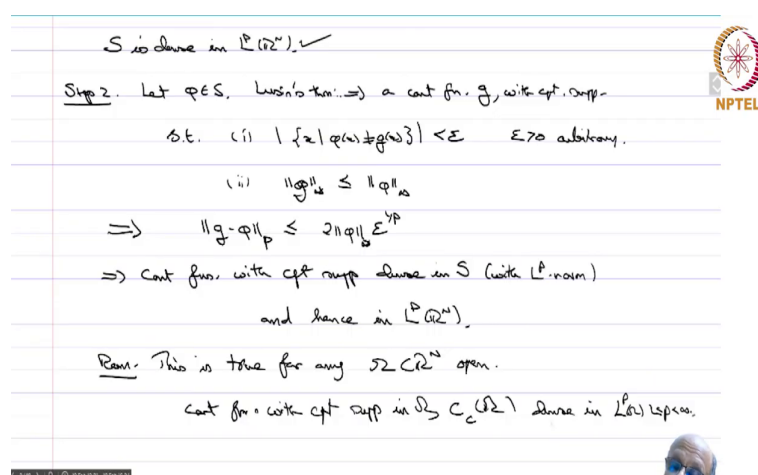 S is dense in L^p(ℝ^N). ✓
NPTEL
Step 2. Let φ∈S. Lusin's thm. ⇒ a cont fn. g, with cpt. supp.
s.t. (i) |{x | φ(x)≠g(x)}| < ε ε>0 arbitrary.
(ii) ‖g‖_∞ ≤ ‖φ‖_∞
⇒ ‖g-φ‖_p ≤ 2‖φ‖_∞ ε^{1/p}
⇒ Cont fns. with cpt supp dense in S (with L^p-norm)
and hence in L^p(ℝ^N).
Rem. This is true for any Ω⊂ℝ^N open.
cont fns. with cpt supp in Ω, C_c(Ω) dense in L^p(Ω) 1≤p<∞.